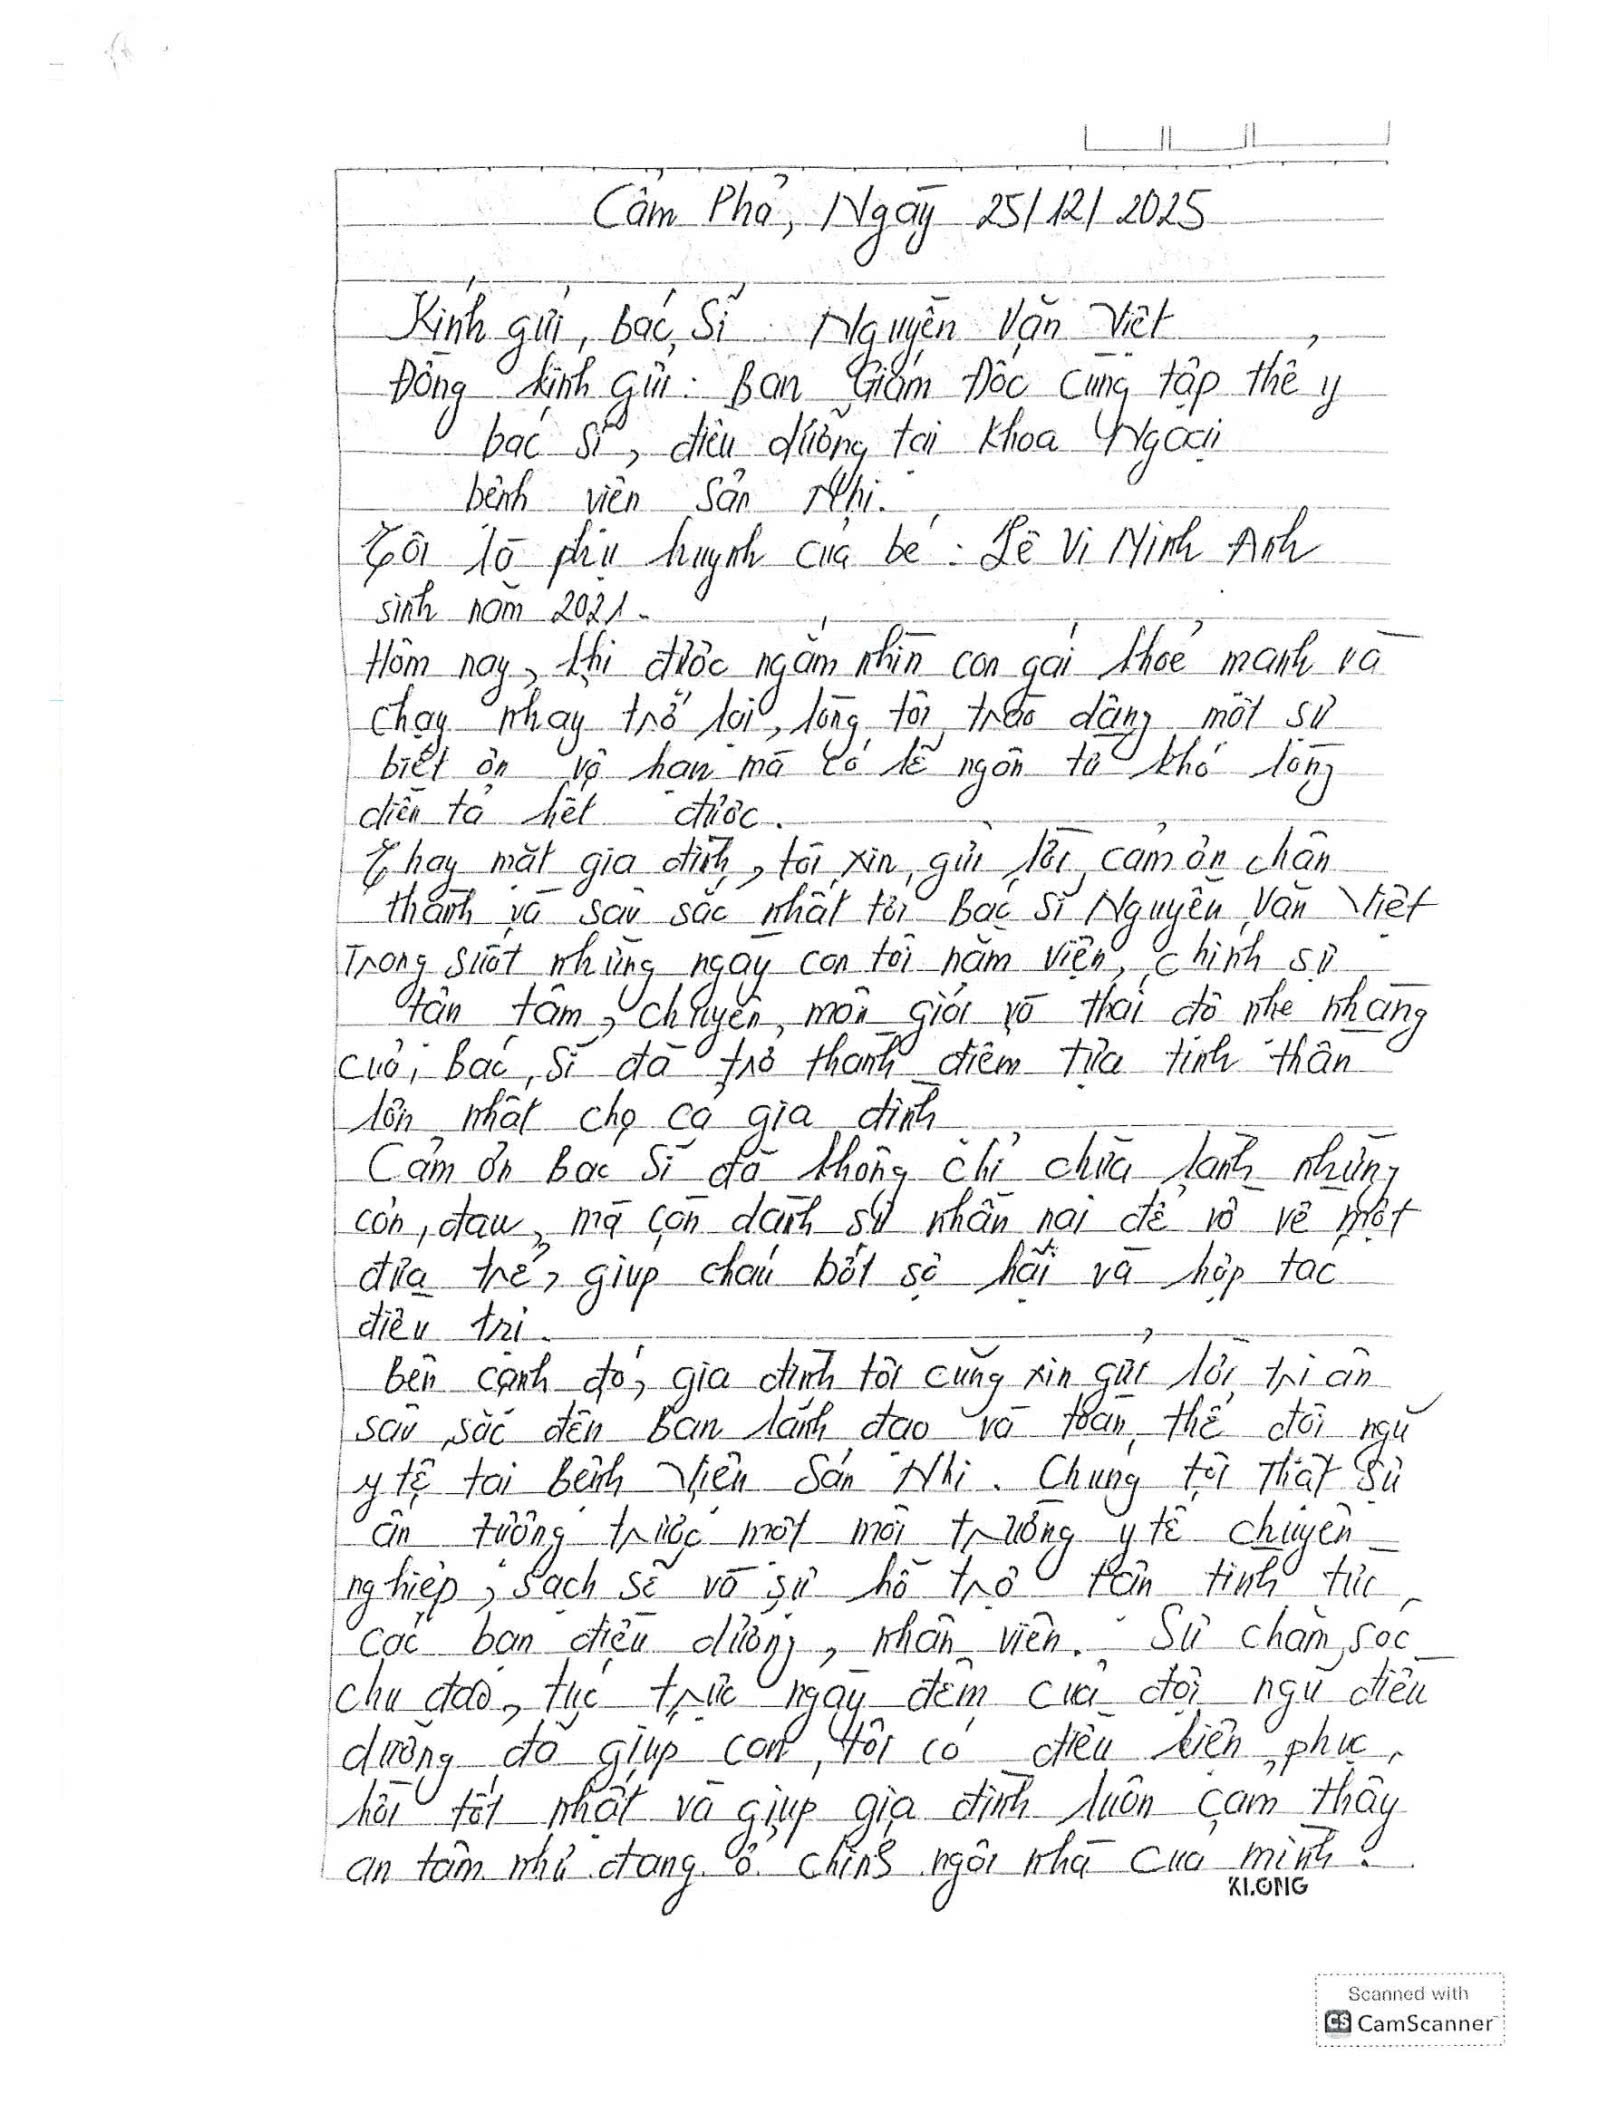 Cẩm Phả, Ngày 25/12/2025
Kính gửi, bác sĩ Nguyễn Văn Việt
Đồng kính gửi: Ban Giám Đốc cùng tập thể y
bác sĩ, điều dưỡng tại khoa Ngoại
bệnh viện Sản Nhi.
Tôi là phụ huynh của bé: Lê Vi Minh Anh
sinh năm 2021.
Hôm nay, khi được ngắm nhìn con gái khoẻ mạnh và
chạy nhảy trở lại, lòng tôi trào dâng một sự
biết ơn vô hạn mà có lẽ ngôn từ khó lòng
diễn tả hết được.
Thay mặt gia đình, tôi xin gửi lời cảm ơn chân
thành và sâu sắc nhất tới Bác sĩ Nguyễn Văn Việt
Trong suốt những ngày con tôi nằm viện, chính sự
tận tâm, chuyên môn giỏi và thái độ nhẹ nhàng
của Bác sĩ đã trở thành điểm tựa tinh thần
lớn nhất cho cả gia đình
Cảm ơn Bác sĩ đã không chỉ chữa lành những
cơn đau, mà còn dành sự nhẫn nại để vỗ về một
đứa trẻ, giúp cháu bớt sợ hãi và hợp tác
điều trị.
Bên cạnh đó, gia đình tôi cũng xin gửi lời tri ân
sâu sắc đến Ban lãnh đạo và toàn thể đội ngũ
y tế tại Bệnh viện Sản Nhi. Chúng tôi thật sự
ấn tượng trước một môi trường y tế chuyên
nghiệp, sạch sẽ và sự hỗ trợ tận tình từ
các bạn điều dưỡng, nhân viên. Sự chăm sóc
chu đáo, túc trực ngày đêm của đội ngũ điều
dưỡng đã giúp con tôi có điều kiện phục
hồi tốt nhất và giúp gia đình luôn cảm thấy
an tâm như đang ở chính ngôi nhà của mình.
KLONG
Scanned with
CS CamScanner